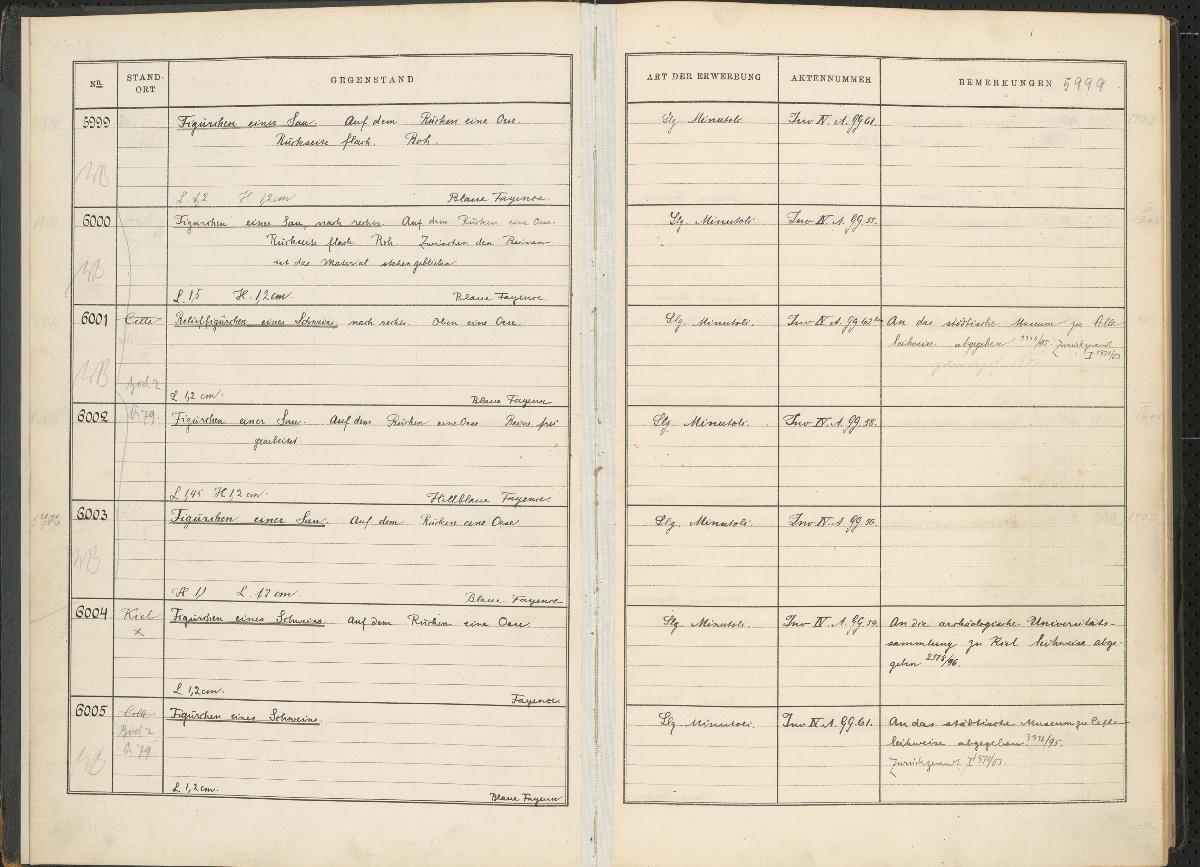 NR.
STAND-
ORT
GEGENSTAND
ART DER ERWERBUNG
AKTENNUMMER
BEMERKUNGEN 5999
5999
Figürchen einer Sau. Auf dem Rücken eine Oese.
Rückseite flach. Roh.
L. 1,2 H 1,2 cm
Blaue Fayence.
Slg. Minutoli
Inv IV. A. gg 61.
6000
Figürchen einer Sau, nach rechts. Auf dem Rücken eine Oese.
Rückseite flach. Roh. Zwischen den Beinen
ist das Material stehengeblieben
L. 1,5 H. 1,2 cm.
Blaue Fayence.
Slg. Minutoli.
Inv IV. A. gg. 55.
6001
Celle
Relieffigürchen eines Schweins, nach rechts. Oben eine Oese.
L 1,2 cm.
Blaue Fayence
Slg. Minutoli.
Inv IV A. gg 62
An das städtische Museum zu Celle
leihweise abgegeben 3938/95. Zurückgesandt
I 1870/03
6002
Figürchen einer Sau. Auf dem Rücken eine Oese. Beine frei
gearbeitet.
L 1,45 H 1,2 cm.
Hellblaue Fayence.
Slg. Minutoli.
Inv IV. A. gg. 58.
6003
Figürchen einer Sau. Auf dem Rücken eine Oese
H 1,1 L. 1,2 cm.
Blaue Fayence
Slg. Minutoli.
Inv IV. A. gg. 56.
6004
Kiel
x
Figürchen eines Schweins. Auf dem Rücken eine Oese.
L 1,2 cm.
Fayence
Slg. Minutoli.
Inv IV. A. gg. 59.
An die archäologische Universitäts-
sammlung zu Kiel leihweise abge-
geben 2578/96.
6005
Celle
Figürchen eines Schweins.
L 1,2 cm.
Blaue Fayence
Slg. Minutoli.
Inv IV A. gg. 61.
An das städtische Museum zu Celle
leihweise abgegeben 3938/95.
Zurückgesandt I 1870/03.